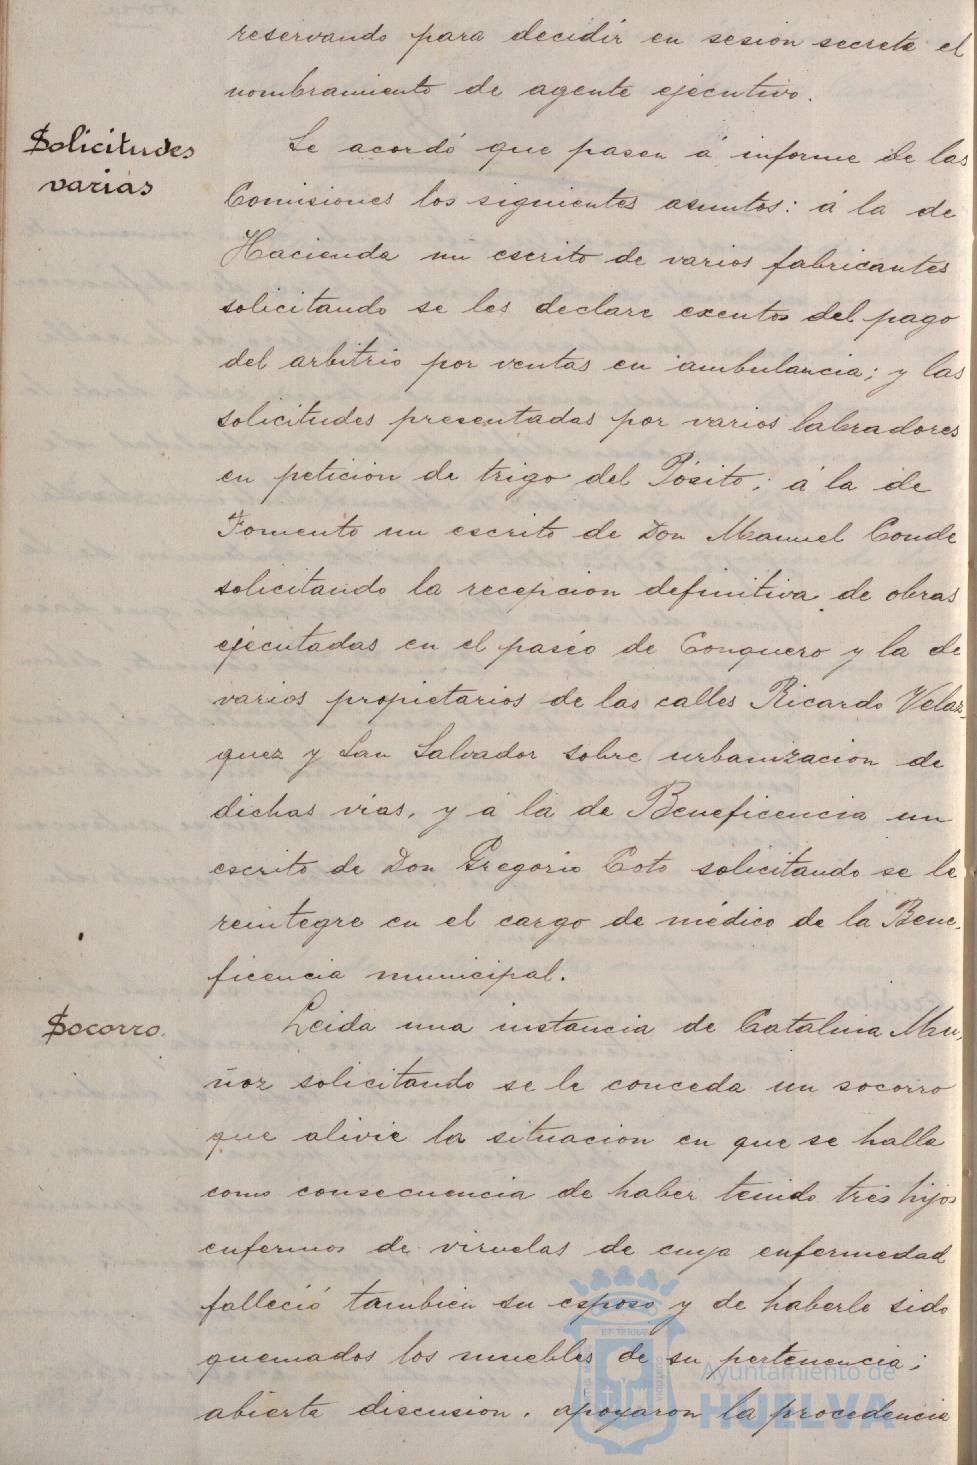 reservando para decidir en sesion secreta el
nombramiento de agente ejecutivo.
Solicitudes
varias
Se acordó que pasen á informe de las
Comisiones los siguientes asuntos: á la de
Hacienda un escrito de varios fabricantes
solicitando se les declare exentos del pago
del arbitrio por ventas en ambulancia; y las
solicitudes presentadas por varios labradores
en peticion de trigo del Pósito; á la de
Fomento un escrito de Don Manuel Conde
solicitando la recepcion definitiva de obras
ejecutadas en el paseo de Conquero y la de
varios propietarios de las calles Ricardo Velaz-
quez y San Salvador sobre urbanizacion de
dichas vias, y á la de Beneficencia un
escrito de Don Gregorio Coto solicitando se le
reintegre en el cargo de médico de la Bene-
ficencia municipal.
Socorro.
Leida una instancia de Catalina Mu-
ñoz solicitando se le conceda un socorro
que alivie la situacion en que se halla
como consecuencia de haber tenido tres hijos
enfermos de viruelas de cuya enfermedad
falleció tambien su esposo y de haberle sido
quemados los muebles de su pertenencia;
abierta discusion, apoyaron la procedencia
Ayuntamiento de
HUELVA